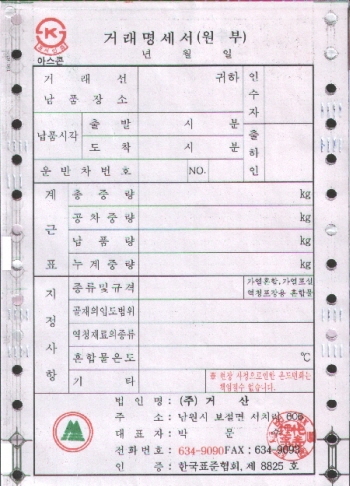 거래명세서(원 부)
년 월 일
아스콘
거 래 선 귀하
납 품 장 소
인수자
납품시각 출 발 시 분
도 착 시 분
출하인
운 반 차 번 호 NO.
계근표
총 중 량 kg
공 차 중 량 kg
납 품 량 kg
누 계 중 량 kg
지정사항
종 류 및 규 격 가열혼합, 가열포설
역청포장용 혼합물
골재의입도범위
역청재료의종류
혼 합 물 온 도 ℃
기 타 ※ 현장 사정으로인한 온도변화는
책임질수 없습니다.
법 인 명 : (주) 거 산
주 소 : 남원시 보절면 서치리 606
대 표 자 : 박 문
전 화 번 호 : 634-9090 FAX : 634-9093
인 증 : 한국표준협회, 제 8825 호